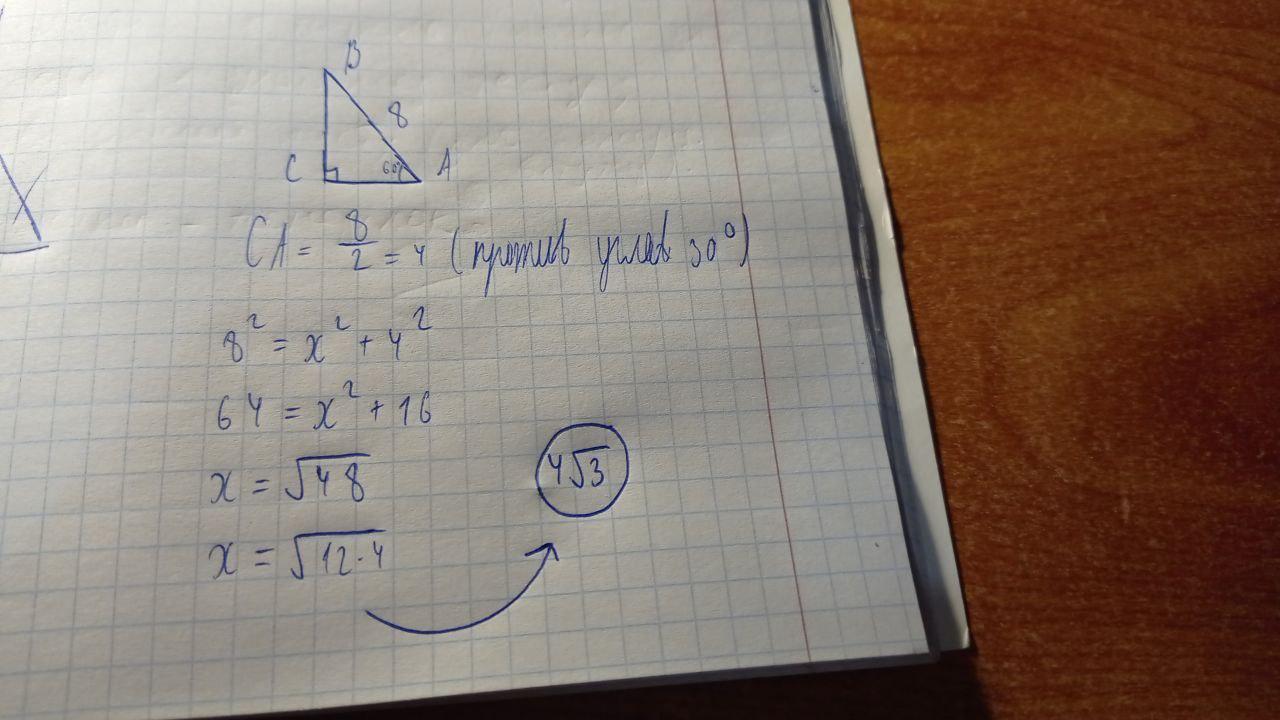 B
8
C
60°
A
CA = 8/2 = 4 (против углов 30°)
8² = x² + 4²
64 = x² + 16
x = √48
x = √12·4
4√3
X